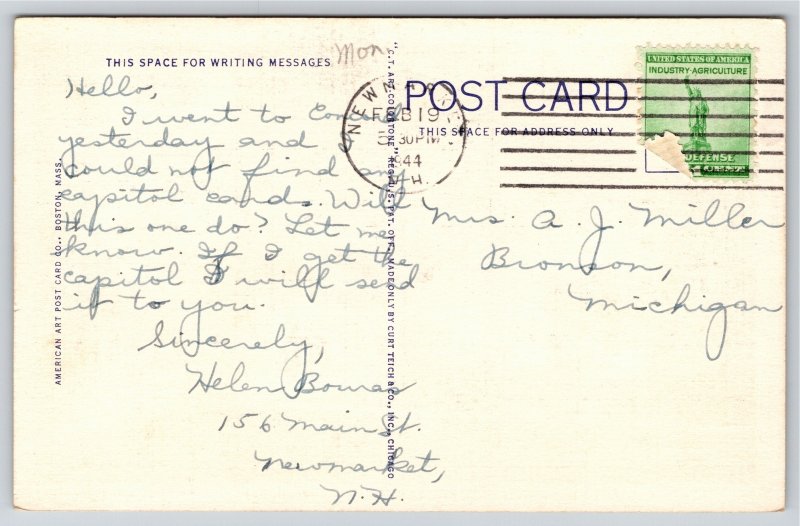 Mon.
THIS SPACE FOR WRITING MESSAGES
Hello,
I went to Concord
yesterday and
could not find any
capitol cards. Will
this one do? Let me
know. If I get the
capitol I will send
it to you.
Sincerely,
Helen Bowras
156 Main St.
Newmarket,
N.H.
AMERICAN ART POST CARD CO., BOSTON, MASS.
"C.T. ART-COLORTONE" REG. U.S. PAT. OFF. MADE ONLY BY CURT TEICH & CO., INC., CHICAGO
POST CARD
THIS SPACE FOR ADDRESS ONLY
FEB 19
30 PM
1944
N.H.
UNITED STATES OF AMERICA
INDUSTRY-AGRICULTURE
DEFENSE
Mrs. A. J. Miller
Bronson,
Michigan